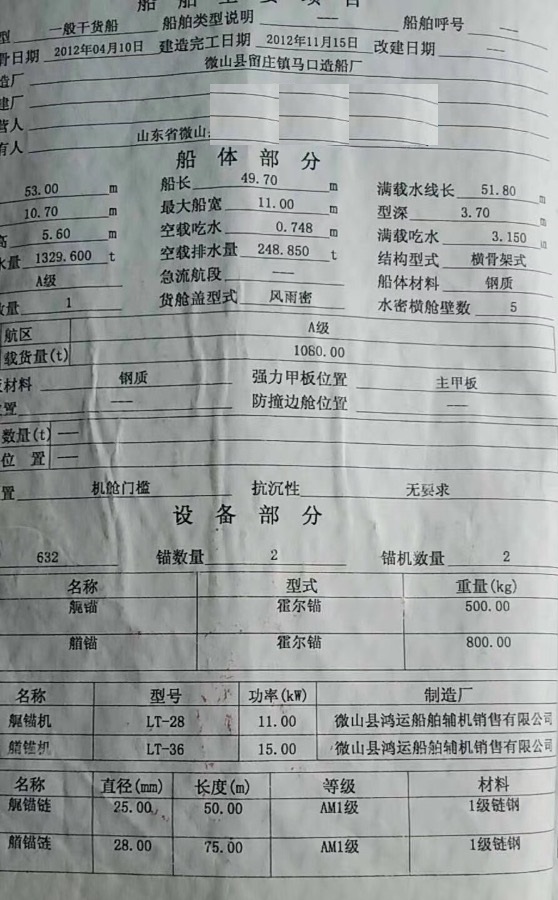 船舶主要项目
型 一般干货船 船舶类型说明 --- 船舶呼号 ---
骨日期 2012年04月10日 建造完工日期 2012年11月15日 改建日期 ---
造厂 微山县留庄镇马口造船厂
建厂
营人
有人 山东省微山
船体部分
53.00 m 船长 49.70 m 满载水线长 51.80 m
10.70 m 最大船宽 11.00 m 型深 3.70 m
高 5.60 m 空载吃水 0.748 m 满载吃水 3.150 m
水量 1329.600 t 空载排水量 248.850 t 结构型式 横骨架式
A级 急流航段 --- 船体材料 钢质
数量 1 货舱盖型式 风雨密 水密横舱壁数 5
航区 A级
载货量(t) 1080.00
材料 钢质 强力甲板位置 主甲板
置 --- 防撞边舱位置 ---
数量(t) ---
位置 ---
置 机舱门槛 抗沉性 无要求
设备部分
632 锚数量 2 锚机数量 2
名称 型式 重量(kg)
艉锚 霍尔锚 500.00
艏锚 霍尔锚 800.00
名称 型号 功率(kW) 制造厂
艉锚机 LT-28 11.00 微山县鸿运船舶辅机销售有限公司
艏锚机 LT-36 15.00 微山县鸿运船舶辅机销售有限公司
名称 直径(mm) 长度(m) 等级 材料
艉锚链 25.00 50.00 AM1级 1级链钢
艏锚链 28.00 75.00 AM1级 1级链钢